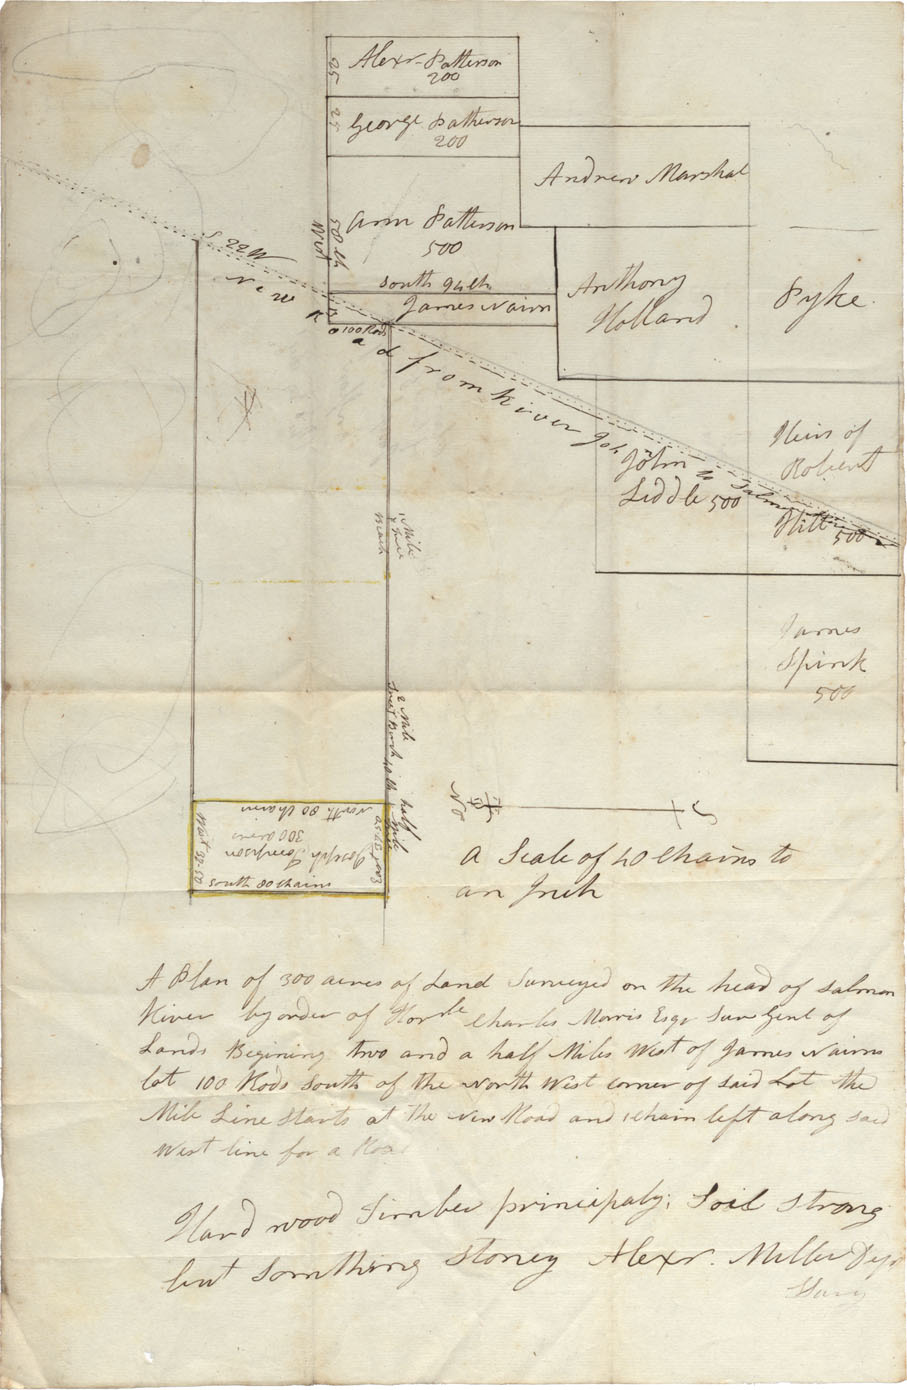 25
Alexr Patterson
200
25
George Patherson
200
Andrew Marshal
Ann Patterson
500
West
South 94 ch
James Nairn
100 Rods
S 22 W
New Road from River Joh to Salmon
Anthony
Holland
Pyke
John
Liddle 500
Heirs of
Robert
Hill 500
James
Spink
500
1 Mile
Beach
2 Mile
half
Mile
North 80 Chain
Joseph Tompson
300 acres
West 37-50
South 80 Chains
No
S
A Scale of 40 Chains to
an Inch
A Plan of 300 acres of Land Surveyed on the head of Salmon
River by order of Honble Charles Morris Esqr Surv Genl of
Lands Begining two and a half Miles West of James Nairns
lot 100 Rods South of the North West corner of Said Lot the
Mile Line Starts at the New Road and 1 chain left along Said
West line for a Road
Hard wood Timber principaly; Soil Strong
but Somthing Stoney Alexr. Miller Depy
Survy